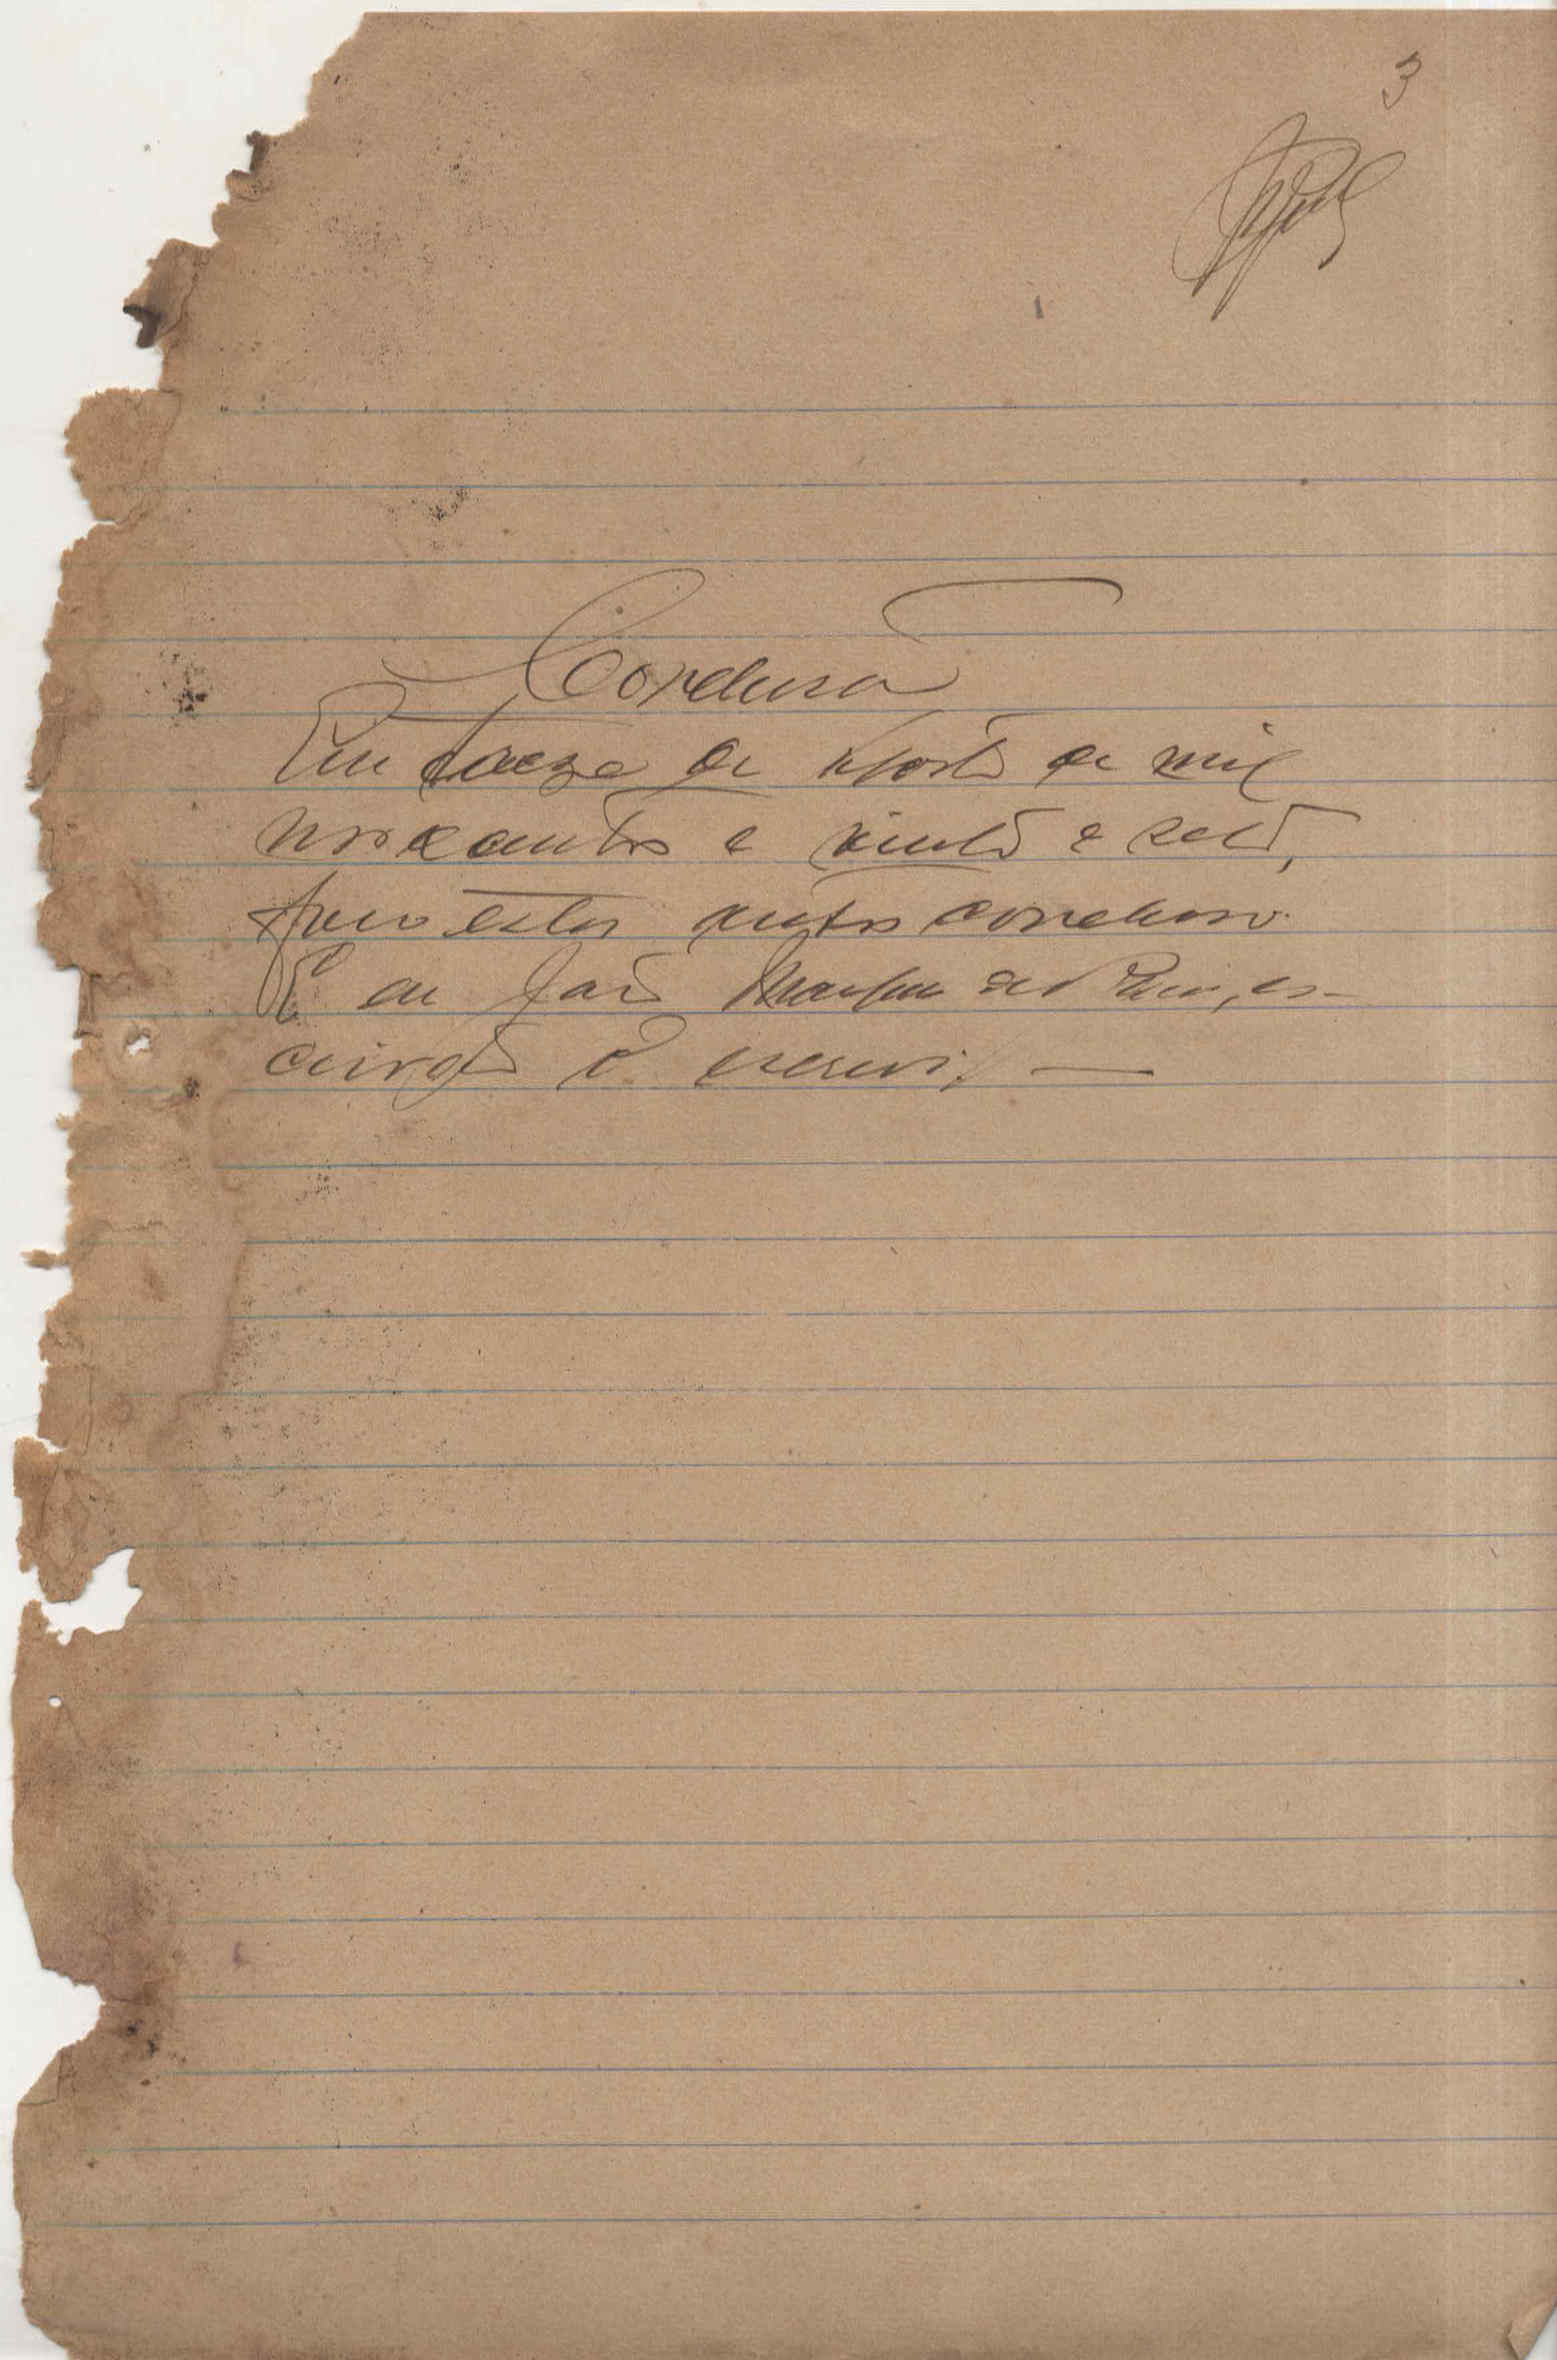 3
Conclusão
Em treze de Agosto de mil
novecentos e vinte e sete,
faço estes autos conclusos.
E eu João de es-
crivão o escrevi.